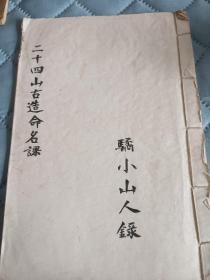 二十四山古造命名課
驕小山人錄